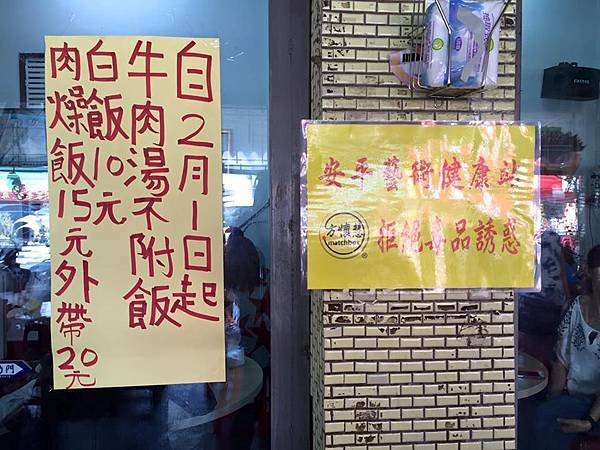 自2月1日起
牛肉湯不附飯
白飯10元
肉燥飯15元外帶20元
安平藝術健康站
方懷想
matchbox
®
拒絕毒品誘惑
門